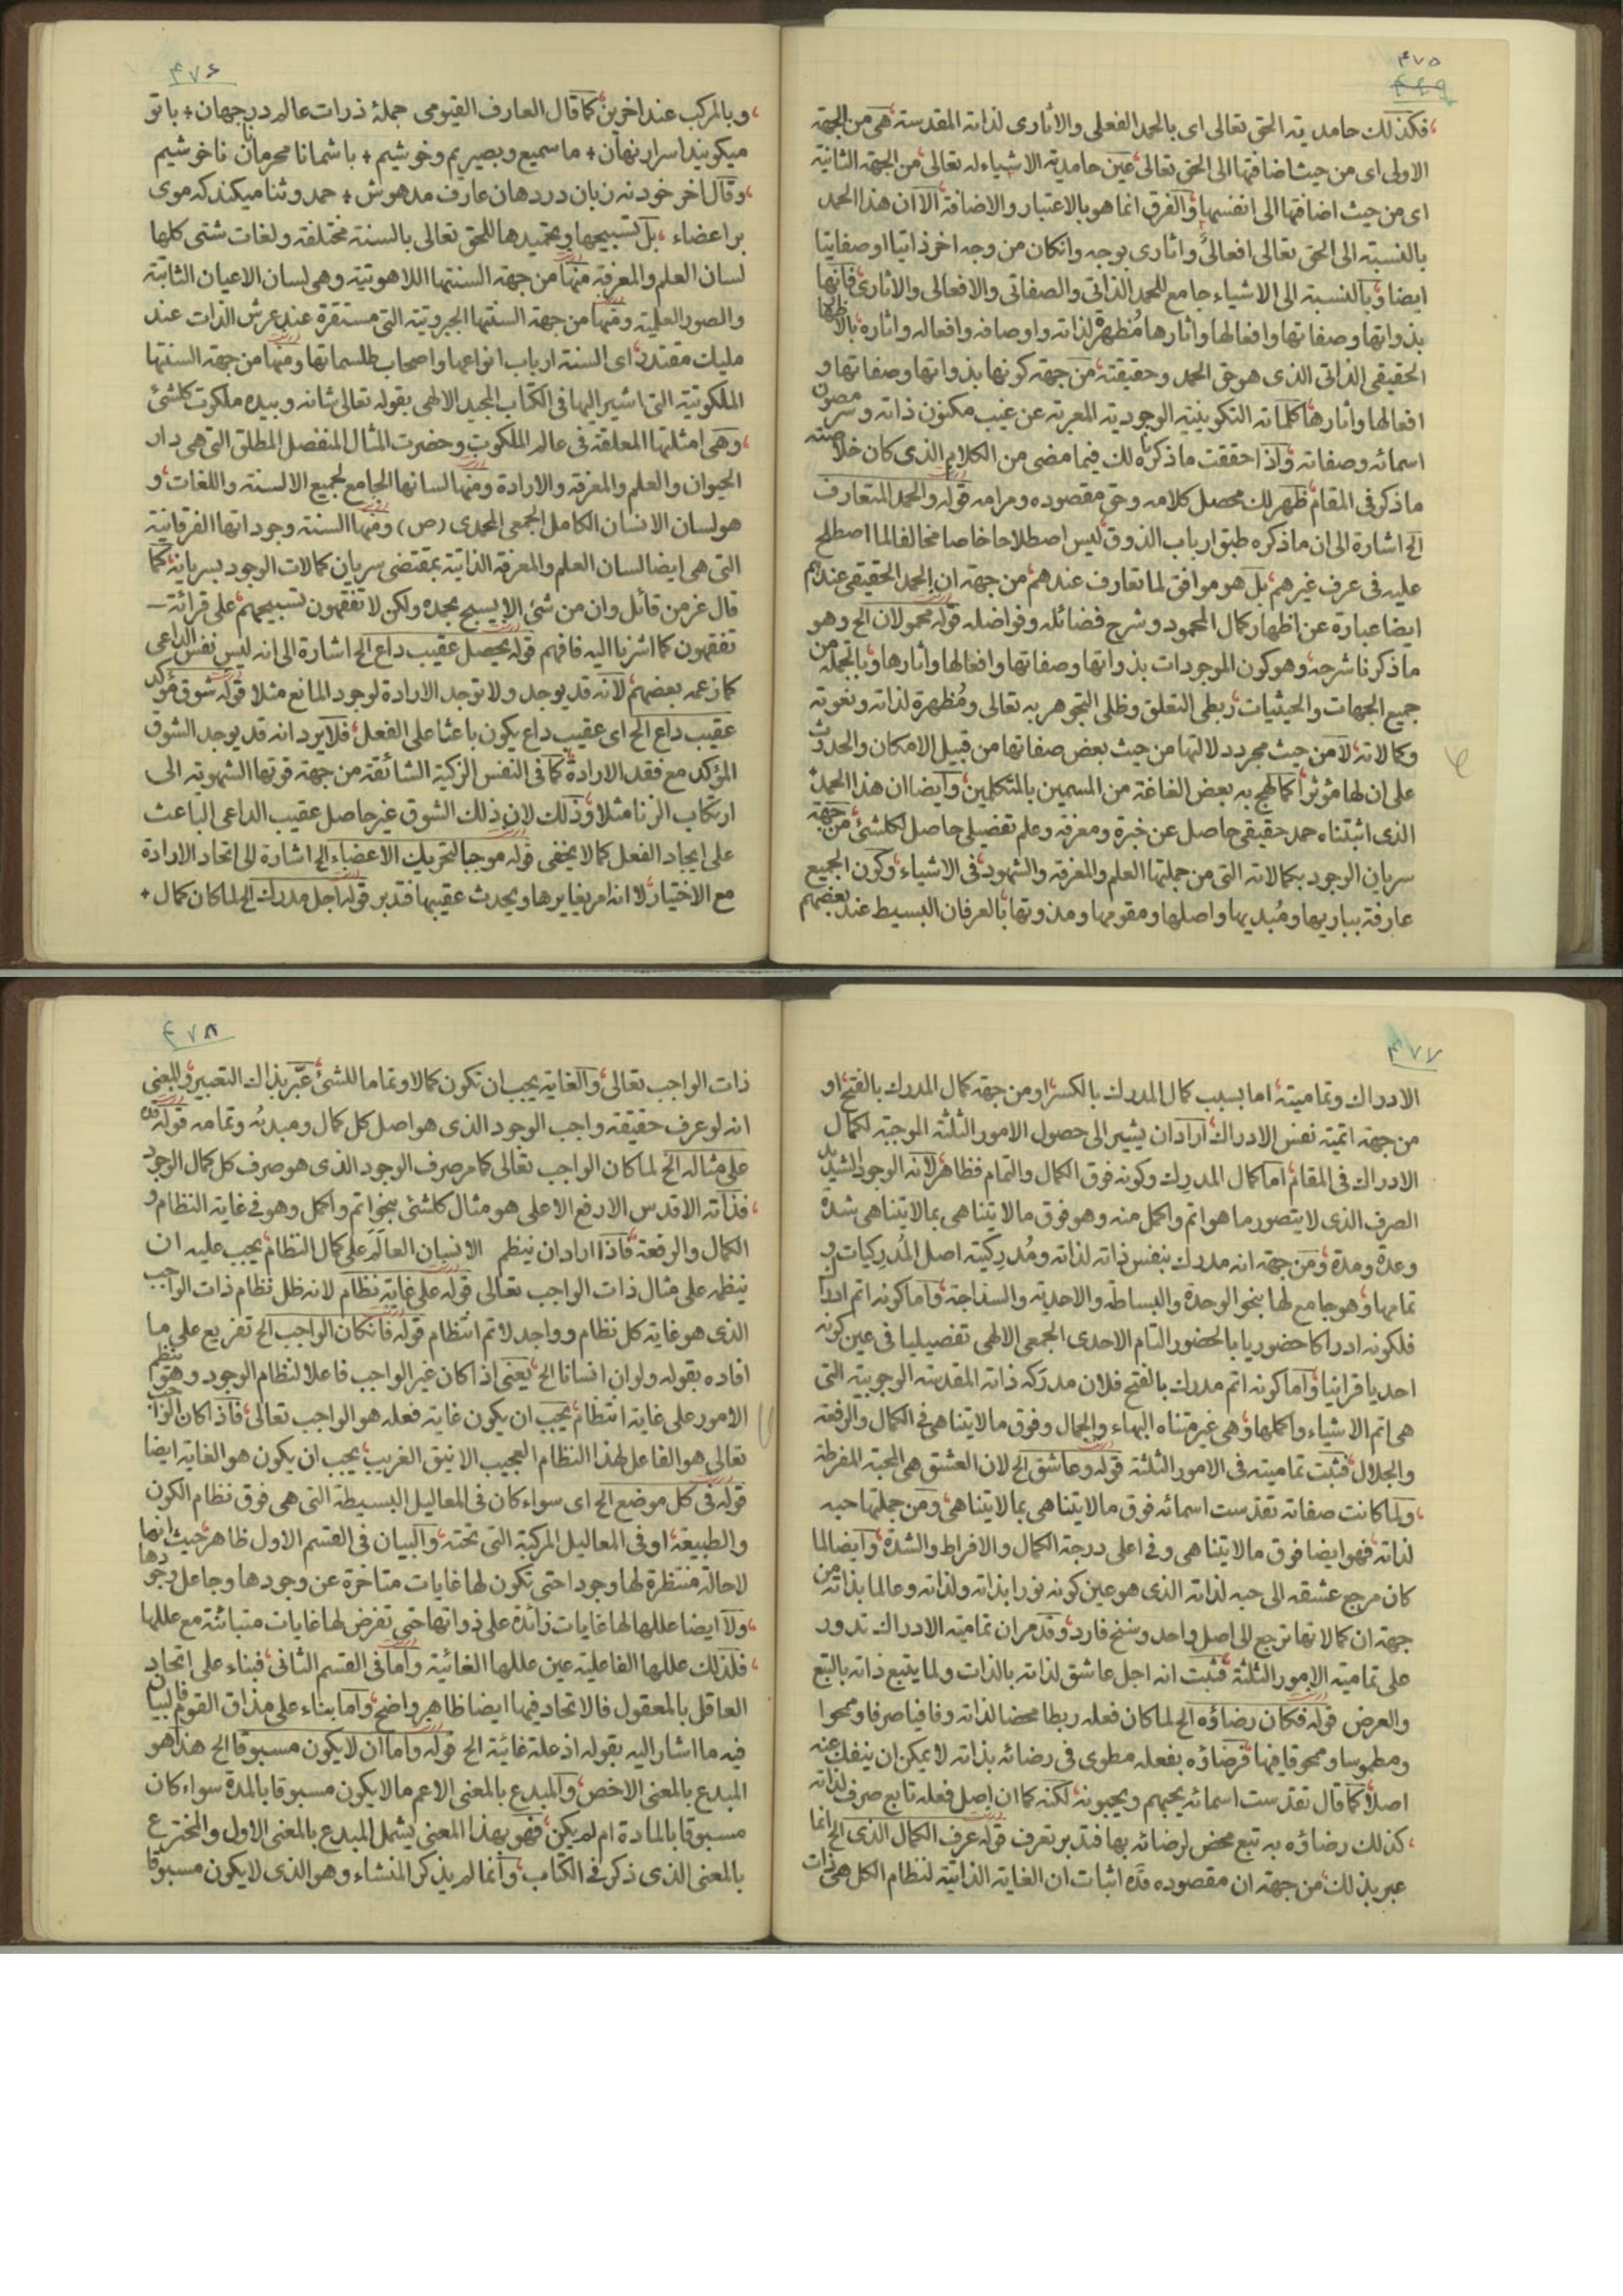 ۴۷۵
۴۶۹
فکذلك حامدیته الحق تعالی ای بالحمد الفعلی والأثاری لذاته المقدسته هی من الجهة
الاولی ای من حیث اضافتها الی الحق تعالی عین حامدیته الاشیاء له تعالی من الجهة الثانیة
ای من حیث اضافتها الی انفسها والفرق انما هو بالاعتبار والاضافة الا ان هذا الحمد
بالنسبته الی الحق تعالی افعالی واثاری بوجه وانکان من وجه اخر ذاتیا او صفاتیا
ایضا وبالنسبته الی الاشیاء جامع للحمد الذاتی والصفاتی والافعالی والاثاری فانها
بذواتها وصفاتها وافعالها واثارها مُظهرة لذاته واوصافه وافعاله واثاره بالاظهار
الحقیقی الذاتی الذی هو حق الحمد وحقیقته من جهته کونها بذواتها وصفاتها و
افعالها واثارها کلماته التکوینیته الوجودیته المعربته عن غیب مکنون ذاته وسر مصون
اسمائه وصفاته واذا حققت ما ذکرنا لك فیما مضی من الکلام الذی کان خلاصته
ما ذکر فی المقام ظهر لك محصل کلامه وحق مقصوده ومرامه قوله والحمد المتعارف
الخ اشارة الی ان ما ذکره طبق ارباب الذوق لیس اصطلاحا خاصا مخالفا لما اصطلح
علیه فی عرف غیرهم بل هو موافق لما تعارف عندهم من جهته ان الحمد الحقیقی عندهم
ایضا عبارة عن اظهار کمال المحمود وشرح فضائله وفواضله قوله محمولان الخ وهو
ما ذکرنا شرحه وهو کون الموجودات بذواتها وصفاتها وافعالها وأثارها وبالجملة من
جمیع الجهات والحیثیات ربطی التعلق وظلی التجوهر به تعالی ومُظهرة لذاته ونعوته
وکمالاته لا من حیث مجرد دلالتها من حیث بعض صفاتها من قبیل الامکان والحدوث
علی ان لها مؤثرا کما لهج به بعض الغاغة من المسمین بالمتکلمین وایضا ان هذا الحمد
الذی اثبتناه حمد حقیقی حاصل عن خبرة ومعرفة وعلم تفضیلی حاصل لکلشئ من جهة
سریان الوجود بکمالاته التی من جملتها العلم والمعرفة والشهود فی الاشیاء وکون الجمیع
عارفة بباریها ومُبدیها واصلها ومقومها ومذوتها بالعرفان البسیط عند بعضهم
۴۷۶
وبالمرکب عند اخرین کما قال العارف القیومی جملۀ ذرات عالم در جهان + با تو
میکویند اسرار نهان + ما سمیع وبصیریم وخوشیم + با شما نامحرمان ناخوشیم
وقال اخر خود نه زبان در دهان عارف مدهوش + حمد وثنا میکند که موی
بر اعضاء بل تسبیحها وتحمیدها للحق تعالی بالسنته مختلفة ولغات شتی کلها
لسان العلم والمعرفة منها من جهته السنتها اللاهوتیة وهی لسان الاعیان الثابتة
والصور العلمیة ومنها من جهة السنتها الجبروتیة التی مستقرة عند عرش الذات عند
ملیك مقتدر ای السنته ارباب انواعها واصحاب طلسماتها ومنها من جهة السنتها
الملکوتیة التی اشیر الیها فی الکتاب المجید الالهی بقوله تعالی شانه وبیده ملکوت کلشئ
وهی امثلتها المعلقة فی عالم الملکوت وحضرت المثال المنفصل المطلق التی هی دار
الحیوان والعلم والمعرفة والارادة ومنها لسانها الجامع لجمیع الالسنته واللغات و
هو لسان الانسان الکامل الجمعی المحمدی (ص) ومنها السنته وجوداتها الفرقانیة
التی هی ایضا لسان العلم والمعرفة الذاتیة بمقتضی سریان کمالات الوجود بسریانه کما
قال عز من قائل وان من شئ الا یسبح بحمده ولکن لا تفقهون تسبیحهم علی قرائة
تفقهون کما اشرنا الیه فافهم قوله یحصل عقیب داع الخ اشارة الی انه لیس نفس الداعی
کما زعمه بعضهم لانه قد یوجد ولا توجد الارادة لوجود المانع مثلا قوله شوق مؤکد
عقیب داع الخ ای عقیب داع یکون باعثا علی الفعل فلا یرد انه قد یوجد الشوق
المؤکد مع فقد الارادة کما فی النفس الزکیة الشائقة من جهة قوتها الشهویة الی
ارتکاب الزنا مثلا وذلك لان ذلك الشوق غیر حاصل عقیب الداعی الباعث
علی ایجاد الفعل کما لا یخفی قوله موجبا لتحریك الاعضاء الخ اشارة الی اتحاد الارادة
مع الاختیار لا انه امر یغایرها ویحدث عقیبها فتدبر قوله اجل مدرك الخ لما کان کمال +
۴۷۷
الادراك وتمامیته اما بسبب کمال المدرك بالکسر او من جهة کمال المدرك بالفتح او
من جهة اتمیته نفس الادراك اراد ان یشیر الی حصول الامور الثلثة الموجبة لکمال
الادراك فی المقام اما کمال المدرِك وکونه فوق الکمال والتمام فظاهر لانه الوجود الشدید
الصرف الذی لا یتصور ما هو اتم واکمل منه وهو فوق ما لا یتناهی بما لا یتناهی شدة
وعدة ومدة ومن جهة انه مدرك بنفس ذاته لذاته ومُدرِکیته اصل المُدرِکیات و
تمامها وهو جامع لها بنحو الوحدة والبساطة والاحدیة والسذاجة واما کونه اتم ادراکا
فلکونه ادراکا حضوریا بالحضور التام الاحدی الجمعی الالهی تفصیلیا فی عین کونه
احدیا قرانیا واما کونه اتم مدرك بالفتح فلان مدرَکه ذاته المقدسة الوجوبیة التی
هی اتم الاشیاء واکملها وهی غیر متناه البهاء والجمال وفوق ما لا یتناهی فی الکمال والرفعة
والجلال فثبت تمامیته فی الامور الثلثة قوله وعاشق الخ لان العشق هی المحبة المفرطة
ولما کانت صفاته تقدست اسمائه فوق ما لا یتناهی بما لا یتناهی ومن جملتها حبه
لذاته فهو ایضا فوق ما لا یتناهی وفی اعلی درجة الکمال والافراط والشدة وایضا لما
کان مرجع عشقه الی حبه لذاته الذی هو عین کونه نورا بذاته ولذاته وعالما بذاته من
جهة ان کمالاتها ترجع الی اصل واحد وسنخ فارد وقد مر ان تمامیته الادراك تدور
علی تمامیته الامور الثلثة فثبت انه اجل عاشق لذاته بالذات ولما یتبع ذاته بالتبع
والعرض قوله فکان رضاؤه الخ لما کان فعله ربطا محضا لذاته وفافیا صرفا وممحوا
ومطموسا وممحوقا فیها فرضاؤه بفعله مطوی فی رضائه بذاته لا یمکن ان ینفك عنه
اصلا کما قال تقدست اسمائه یحبهم ویحبونه لکنه کما ان اصل فعله تابع صرف لذاته
کذلك رضاؤه به تبع محض لرضائه بها فتدبر تعرف قوله عرف الکمال الذی الخ انما
عبر بذلك من جهة ان مقصوده قده اثبات ان الغایة الذاتیة لنظام الکل هی ذات
۴۷۸
ذات الواجب تعالی والغایة یجب ان تکون کمالا وتماما للشئ عبّر بذاك التعبیر والمعنی
انه لو عرف حقیقة واجب الوجود الذی هو اصل کل کمال ومبدئه وتمامه قوله قده
علی مثاله الخ لما کان الواجب تعالی کما مر صرف الوجود الذی هو صرف کل کمال الوجود
فذاته الاقدس الارفع الاعلی هو مثال کلشئ بنحو اتم واکمل وهو فی غایة النظام و
الکمال والرفعة فاذا اراد ان ینظم الانسان العالم علی کمال النظام یجب علیه ان
ینظمه علی مثال ذات الواجب تعالی قوله علی غایة نظام لانه ظل نظام ذات الواجب
الذی هو غایة کل نظام وواجد لاتم انتظام قوله فانکان الواجب الخ تفریع علی ما
افاده بقوله ولو ان انسانا الخ یعنی اذا کان غیر الواجب فاعلا لنظام الوجود وهو ینظم
الامور علی غایة انتظام یجب ان یکون غایة فعله هو الواجب تعالی فاذا کان الواجب
تعالی هو الفاعل لهذا النظام العجیب الانیق الغریب یجب ان یکون هو الغایة ایضا
قوله فی کل موضع الخ ای سواء کان فی المعالیل البسیطة التی هی فوق نظام الکون
والطبیعة او فی المعالیل المرکبة التی تحته والبیان فی القسم الاول ظاهر حیث انها
لا حالة منتظرة لها وجودا حتی تکون لها غایات متاخرة عن وجودها وجاعل وجودها
ولا ایضا عللها لها غایات زائدة علی ذواتها حتی تفرض لها غایات متبائنة مع عللها
فلذلك عللها الفاعلیة عین عللها الغائیة واما فی القسم الثانی فبناء علی اتحاد
العاقل بالمعقول فالاتحاد فیها ایضا ظاهر واضح واما بناء علی مذاق القوم فالبیان
فیه ما اشار الیه بقوله اذ علة غائیة الخ قوله واما ان لا یکون مسبوقا الخ هذا هو
المبدع بالمعنی الاخص والمبدع بالمعنی الاعم ما لا یکون مسبوقا بالمدة سواء کان
مسبوقا بالمادة ام لم یکن فهو بهذا المعنی یشمل المبدع بالمعنی الاول والمخترع
بالمعنی الذی ذکر فی الکتاب وانما لم یذکر المنشاء وهو الذی لا یکون مسبوقا